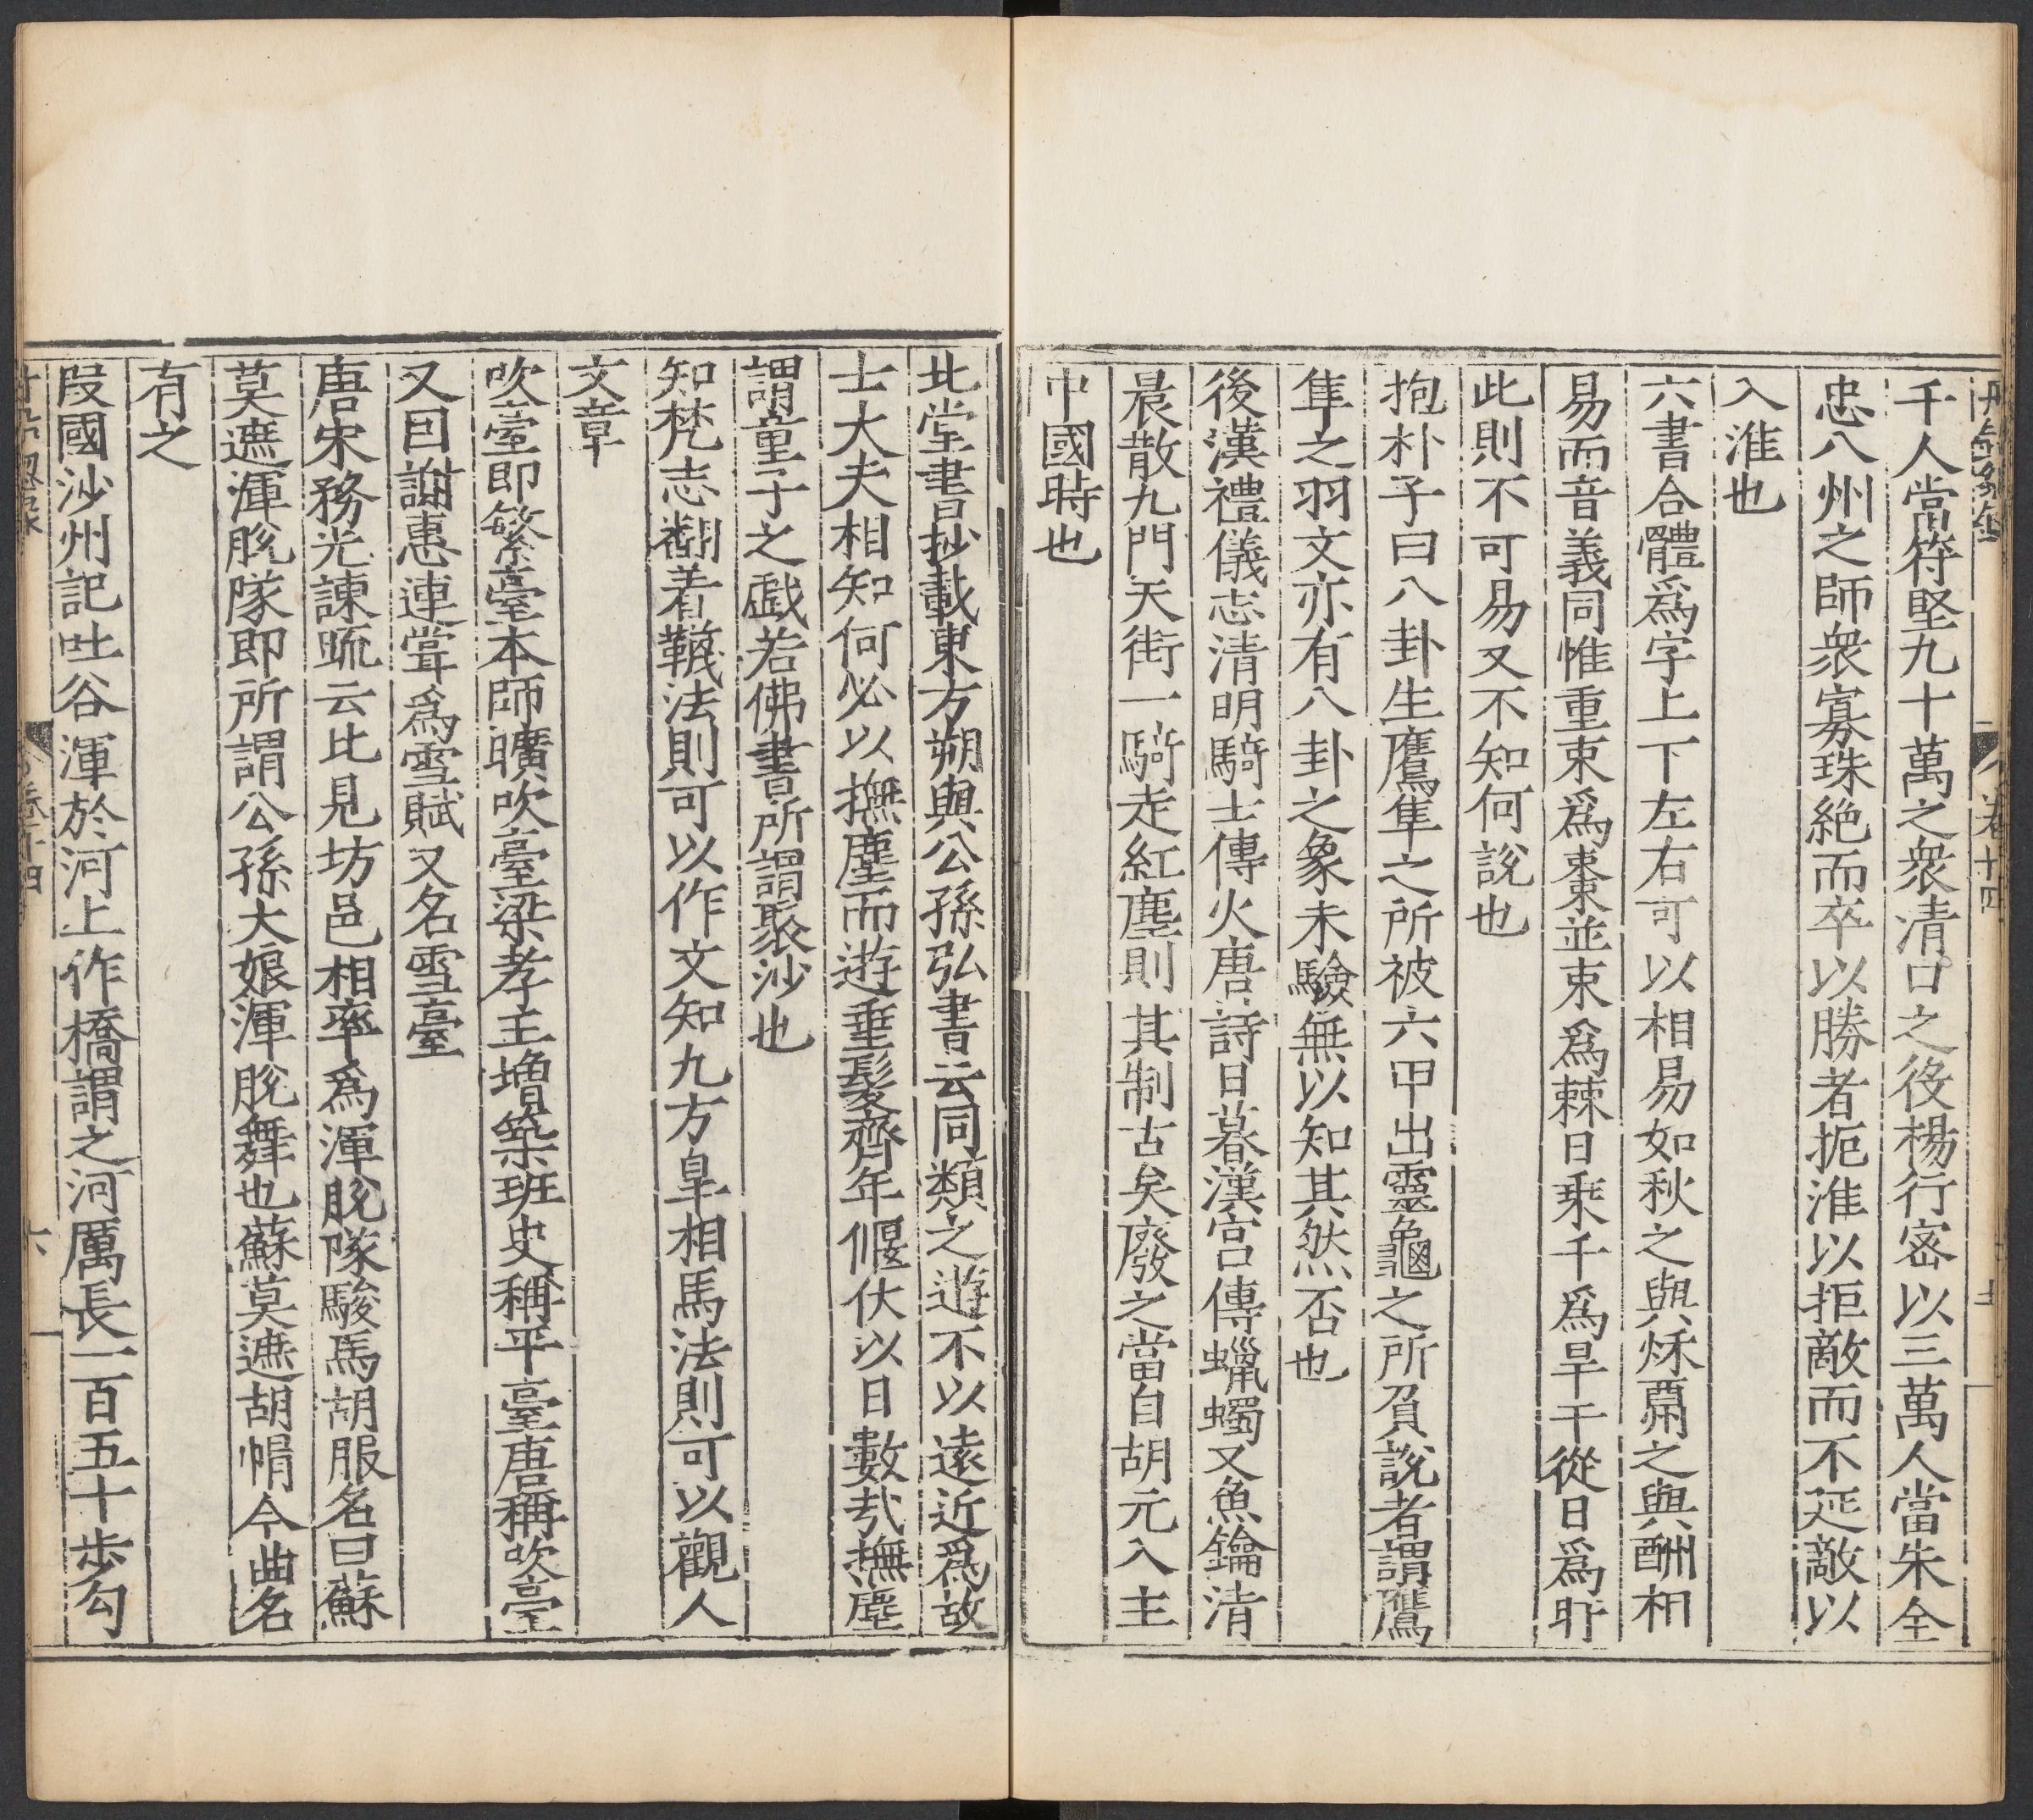 千人當符堅九十萬之衆清口之役楊行宻以三萬人當朱全
忠八州之師衆寡殊絶而卒以勝者扼淮以拒敵而不延敵以
入淮也
六書合體爲字上下左右可以相易如秋之與秌鬴之與酬相
易而音義同惟重朿爲棗並朿爲棘日乗千爲旱干從日爲旰
此則不可易又不知何說也
抱朴子曰八卦生鷹隼之所被六甲出靈龜之所負說者謂鷹
隼之羽文亦有八卦之象未驗無以知其然否也
後漢禮儀志清明騎士傳火唐詩日暮漢宮傳蠟蠋又魚鑰清
晨散九門天街一騎走紅塵則其制古矣廢之當自胡元入主
中國時也
北堂書抄載東方朔與公孫弘書云同類之遊不以遠近爲故
士大夫相知何必以撫塵而遊垂髮齊年偃伏以日數哉撫塵
謂童子之戯若佛書所謂聚沙也
知梵志翻着韈法則可以作文知九方臯相馬法則可以觀人
文章
吹臺即繁臺本師曠吹臺梁孝王增築班史稱平臺唐稱吹臺
又囙謝惠連嘗爲雪賦又名雪臺
唐宋務光諫䟽云比見坊邑相率爲渾脫隊駿馬胡服名曰蘇
莫遮渾脫隊即所謂公孫大娘渾脫舞也蘇莫遮胡帽今曲名
有之
叚國沙州記吐谷渾於河上作橋謂之河厲長一百五十步勾
卷十四
六